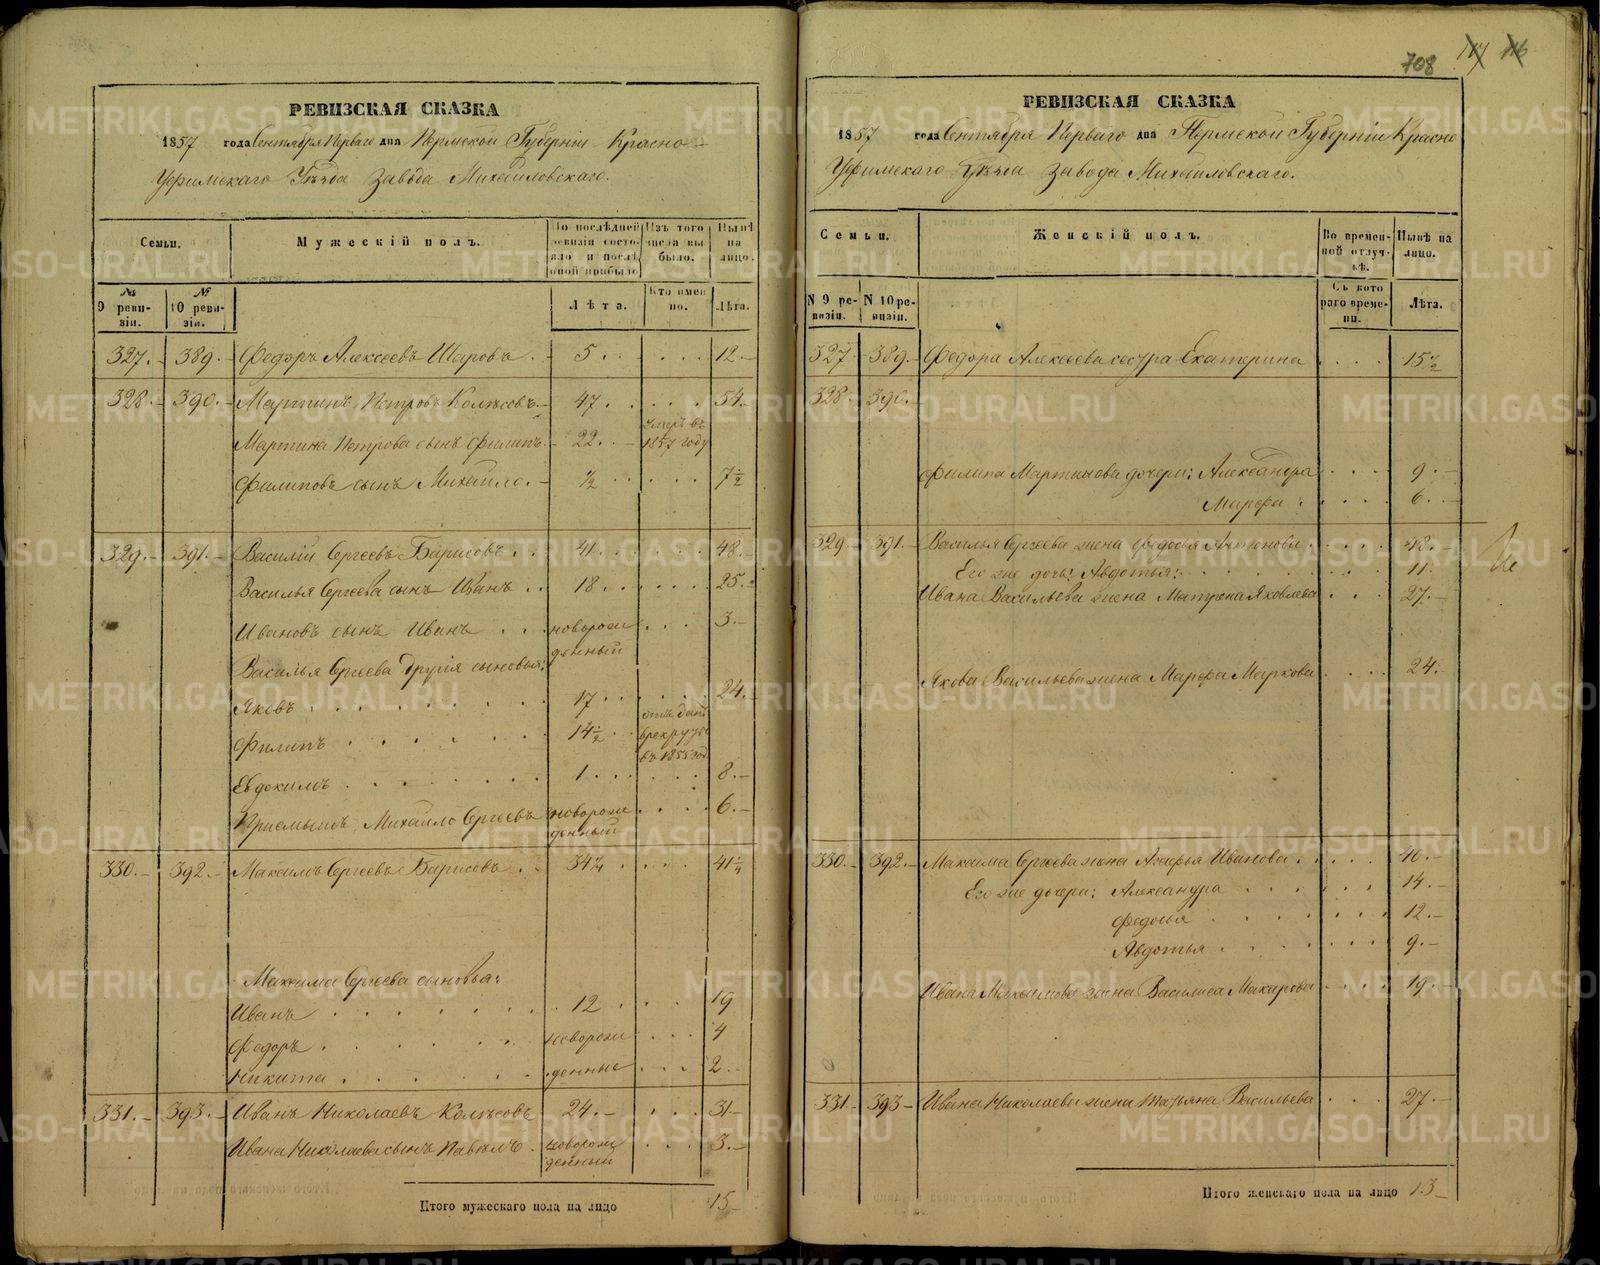 РЕВИЗСКАЯ СКАЗКА
1857 года Сентября Перваго дня Пермской Губерніи Красно-
Уфимскаго Уѣзда Завода Михайловскаго.
Семьи. Мужескій полъ. По послѣдней ревизіи состояло и послѣ оной прибыло Изъ того числа выбыло. Нынѣ на лицо.
№ 9 ревизіи. № 10 ревизіи. Лѣта. Кто именно. Лѣта.
327. 389. Федоръ Алексеевъ Шаровъ 5 12
328. 390. Мартинъ Петровъ Колѣсовъ 47 54
Мартина Петрова сынъ Филипъ 22 умеръ въ 1857 году
Филиповъ сынъ Михайло 1/2 7 1/2
329. 391. Василій Сергеевъ Барисовъ 41 48
Василья Сергеева сынъ Иванъ 18 25
Ивановъ сынъ Иванъ новорожденный 3
Василья Сергеева другія сыновья:
Яковъ 17 24
Филипъ 14 1/2 отданъ в рекруты въ 1855 год
Евдокимъ 1 8
Приемышъ Михайло Сергеевъ новорожденный 6
330. 392. Максимъ Сергеевъ Барисовъ 34 1/4 41 1/4
Максима Сергеева сыновья:
Иванъ 12 19
Федоръ новорож- 4
Никита денные 2
331. 393. Иванъ Николаевъ Колѣсовъ 24 31
Ивана Николаева сынъ Павелъ новорожденный 3
Итого мужескаго пола на лицо 15
708 117 116
РЕВИЗСКАЯ СКАЗКА
1857 года Сентября Перваго дня Пермской Губерніи Красно
Уфимскаго Уѣзда Завода Михайловскаго.
Семьи. Женскій полъ. Во временной отлучкѣ. Нынѣ на лицо.
N 9 ревизіи. N 10 ревизіи. Съ котораго времени. Лѣта.
327 389 Федора Алексеева сестра Екатерина 15 1/2
328 390
Филипа Мартинова дочери: Александра 9
Марфа 6
329 391 Василья Сергеева жена Федосья Антонова 48
Его же дочь: Авдотья: 11
Ивана Васильева жена Матрена Яковлева 27
Якова Васильева жена Марфа Маркова 24
330 392 Максима Сергеева жена Агафья Иванова 40
Его же дочери: Александра 14
Федосья 12
Авдотья 9
Ивана Максимова жена Василиса Макарова 19
331 393 Ивана Николаева жена Татьяна Васильева 27
Итого женскаго пола на лицо 13
METRIKI.GASO-URAL.RU